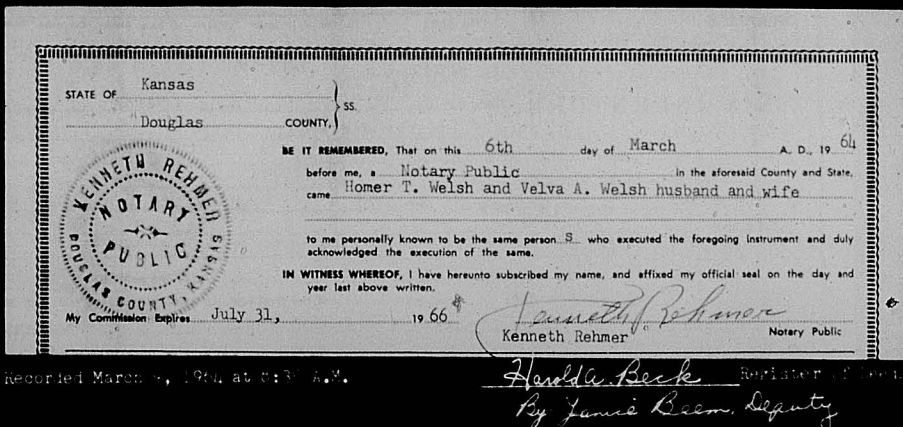 STATE OF Kansas
Douglas COUNTY, } SS.
BE IT REMEMBERED, That on this 6th day of March A. D., 19 64
before me, a Notary Public in the aforesaid County and State,
came Homer T. Welsh and Velva A. Welsh husband and wife
to me personally known to be the same person S who executed the foregoing instrument and duly
acknowledged the execution of the same.
IN WITNESS WHEREOF, I have hereunto subscribed my name, and affixed my official seal on the day and
year last above written.
KENNETH REHMER
NOTARY
PUBLIC
DOUGLAS COUNTY, KANSAS
My Commission Expires July 31, 19 66
Kenneth Rehmer
Kenneth Rehmer Notary Public
Recorded March 1964 at A.M. Harold A. Beck Register of Deeds
By Janice Beem, Deputy